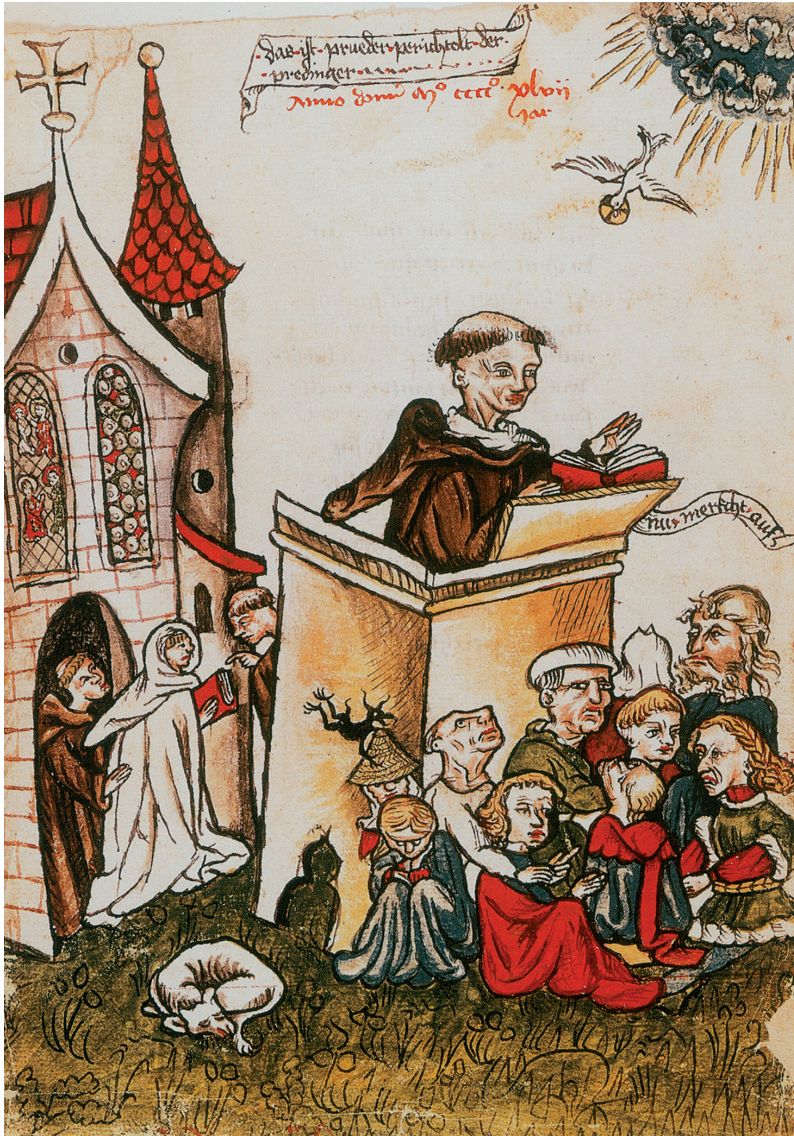 ·das·ist·prueder·perichtolt·der·
·predinger·
Anno domĩ Mº ccccº xlvii
Jar
nu·merkcht·auf·